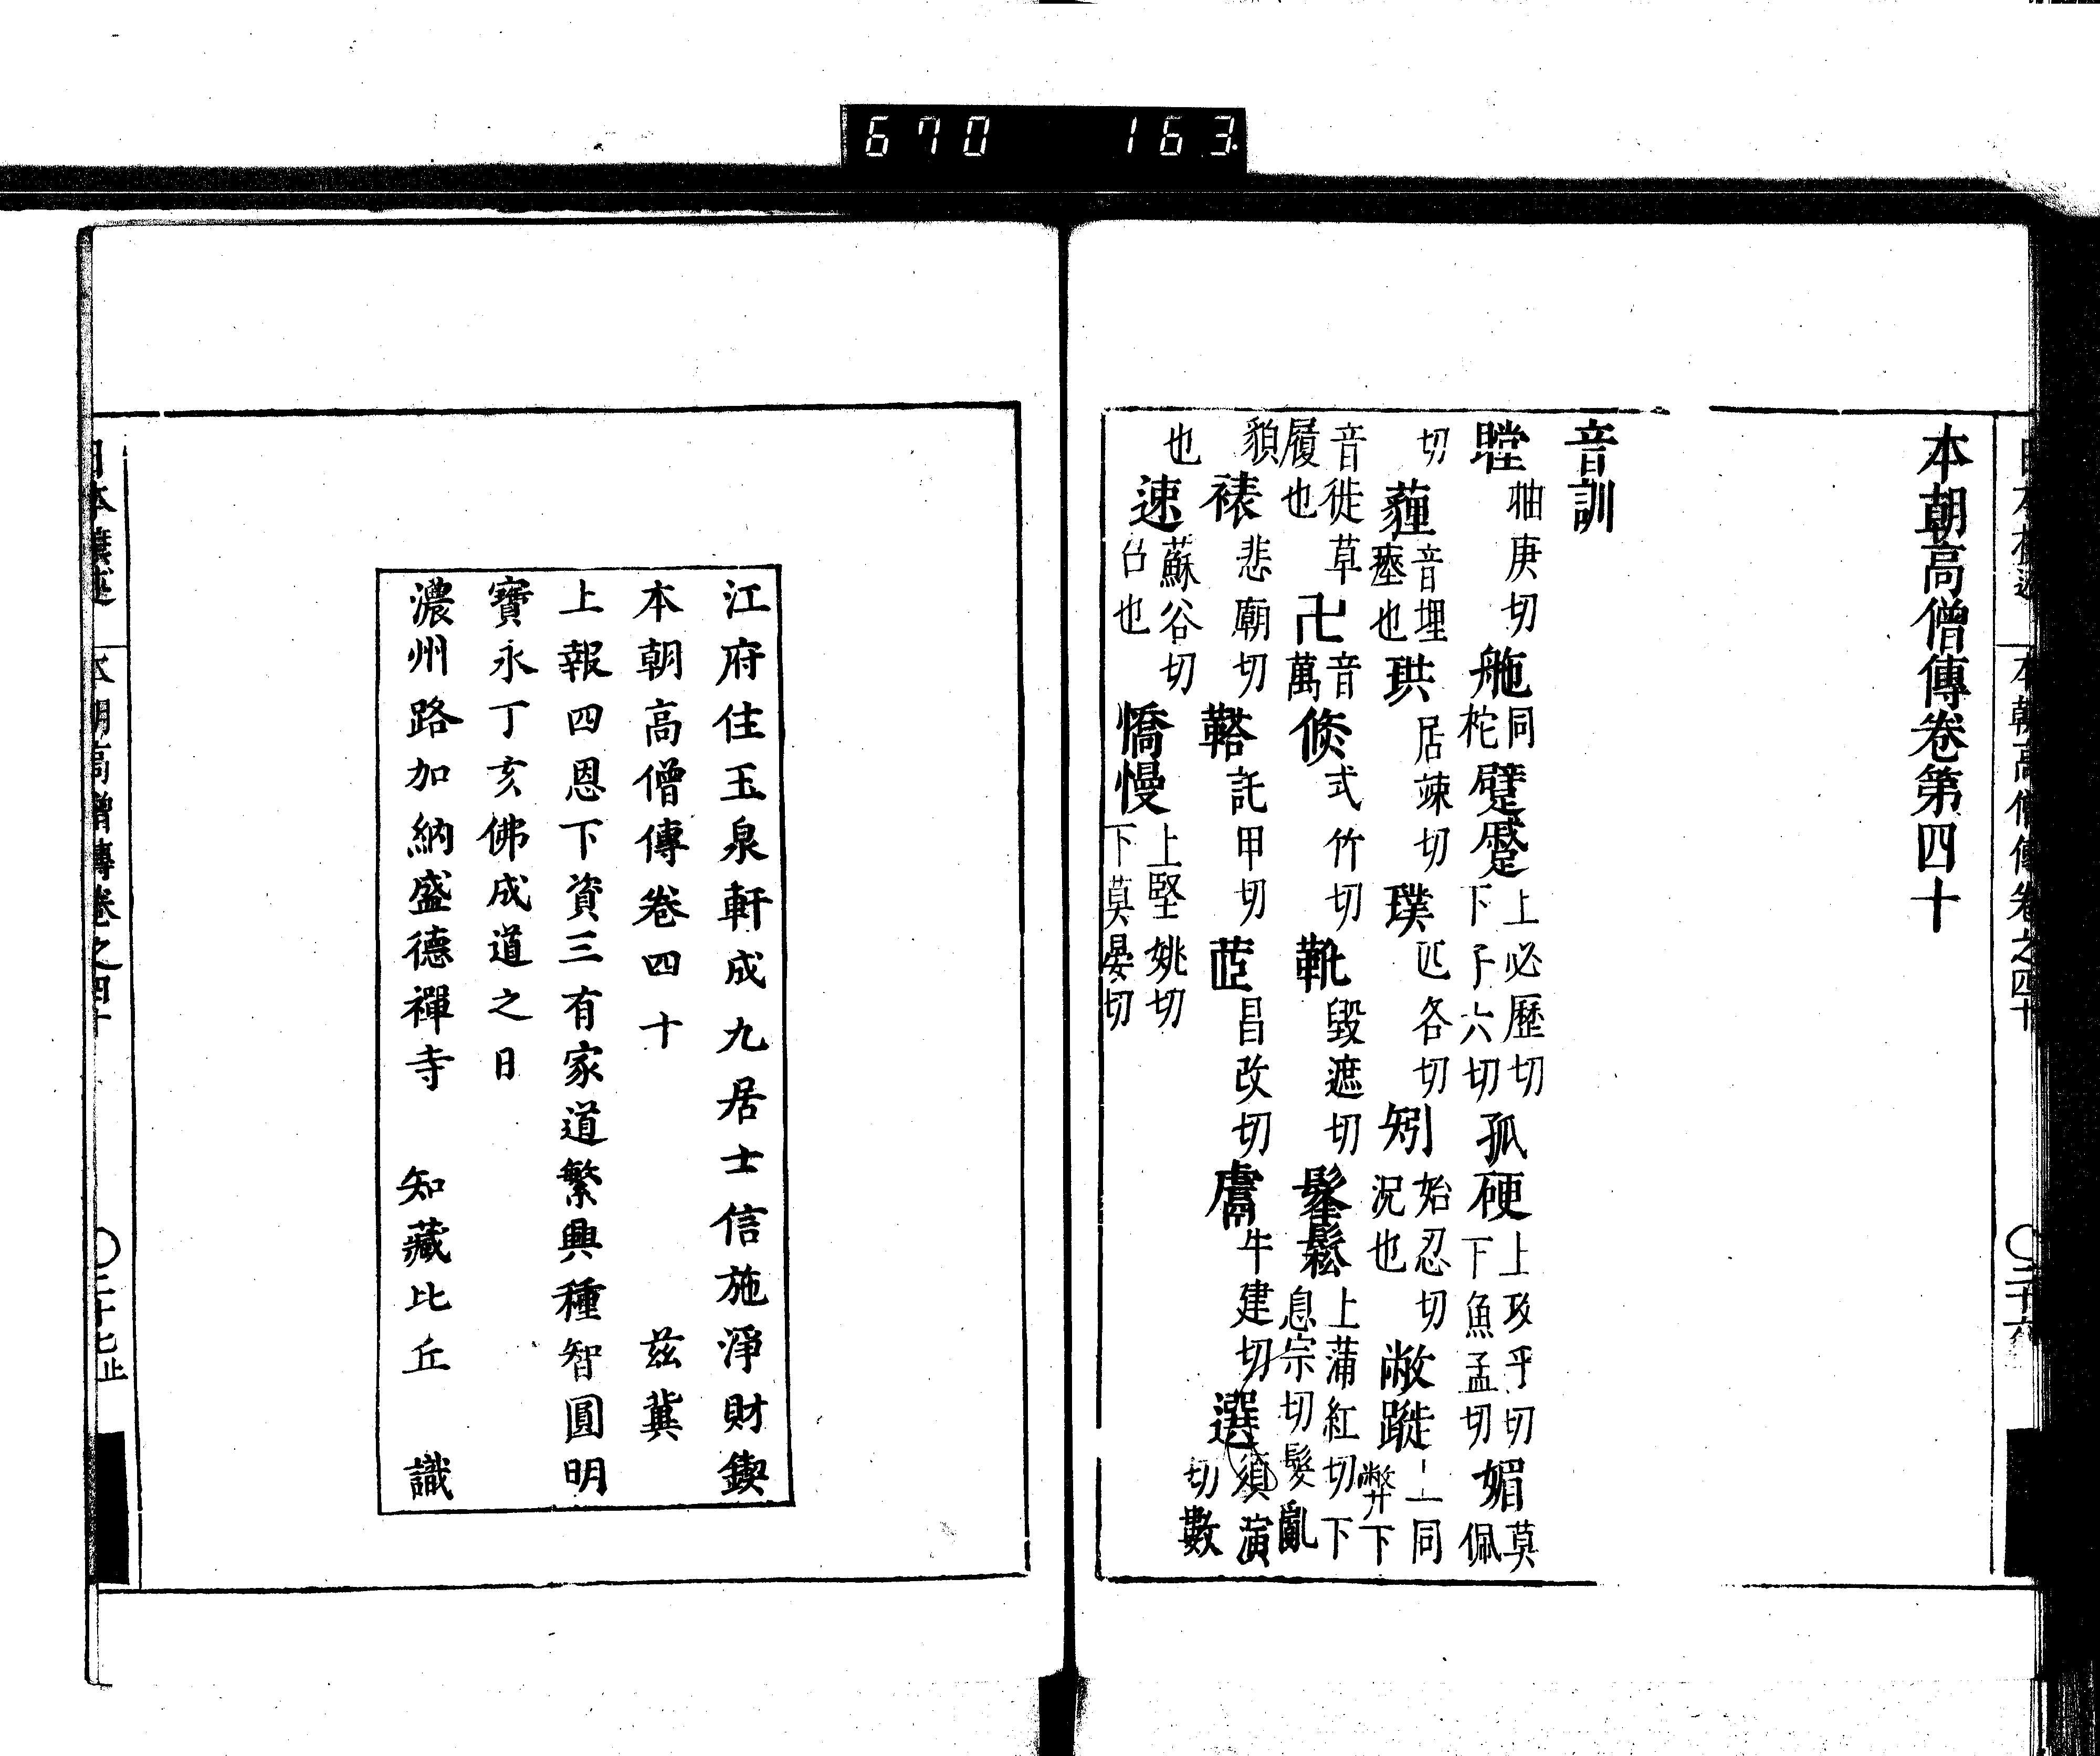 670 163
本朝高僧傳卷第四十
音訓
瞠 柚庚切 䑨 同柁 躄蹙 上必歷切下子六切 孤硬 上攻乎切下魚孟切 媚 莫佩
切 薶 音埋瘞也 珙 居竦切 璞 匹各切 矧 始忍切況也 敝蹝 上同弊下
音徙草履也 卍 音萬 倏 式竹切 靴 毀遮切 髼鬆 上蒲紅切下息宗切髮亂
貌 裱 悲廟切 鞳 託甲切 茝 昌改切 鬳 牛建切 選 須演切數
也 速 蘇谷切召也 憍慢 上堅姚切下莫晏切
江府住玉泉軒成九居士信施淨財鍥
本朝高僧傳卷四十 茲冀
上報四恩下資三有家道繁興種智圓明
寶永丁亥佛成道之日
濃州路加納盛德禪寺 知藏比丘 識
本朝高僧傳卷之四十